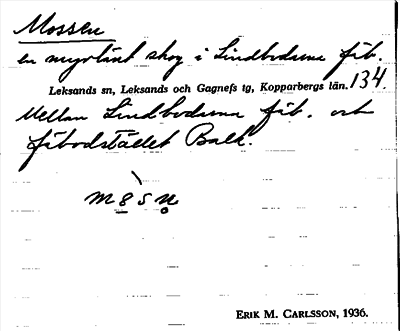 Mossen
en myrlänt skog i Lindbodarna fäb.
Leksands sn, Leksands och Gagnefs tg, Kopparbergs län. 134.
Mellan Lindbodarna fäb. och
fäbodstället Balk.
m 8 s n̥
ERIK M. CARLSSON, 1936.